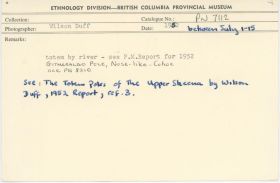 ETHNOLOGY DIVISION—BRITISH COLUMBIA PROVINCIAL MUSEUM
Collection: Catalogue No.: PN 7112
Photographer: Wilson Duff 1952 between July 1-15
Remarks:
totem by river - see P.M.Report for 1952
Pole, Nose-like-Coho
see PN 8210
See: The Totem Poles of the Upper Skeena by Wilson
Duff, 1952 Report, ref. 3.